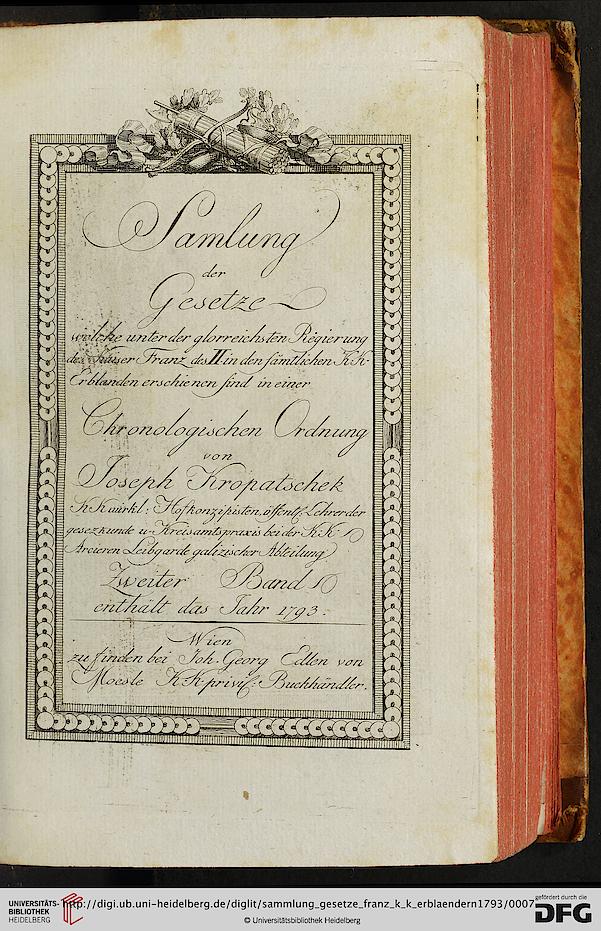 Samlung
der
Gesetze
welche unter der glorreichsten Regierung
des Kaiser Franz des II in den sämtlichen K K
Erblanden erschienen sind in einer
Chronologischen Ordnung
von
Joseph Kropatschek
K K würkl: Hofkonzipisten, öffentl. Lehrer der
gesezkunde u. Kreisamtspraxis bei der K. K.
Arcieren Leibgarde galizischer Abteilung
Zweiter Band
enthält das Jahr 1793.
Wien
zu finden bei Joh. Georg Edlen von
Moesle K K privil: Buchhändler.
UNIVERSITÄTS-
BIBLIOTHEK
HEIDELBERG
http://digi.ub.uni-heidelberg.de/diglit/sammlung_gesetze_franz_k_k_erblaendern1793/0007
© Universitätsbibliothek Heidelberg
gefördert durch die
DFG